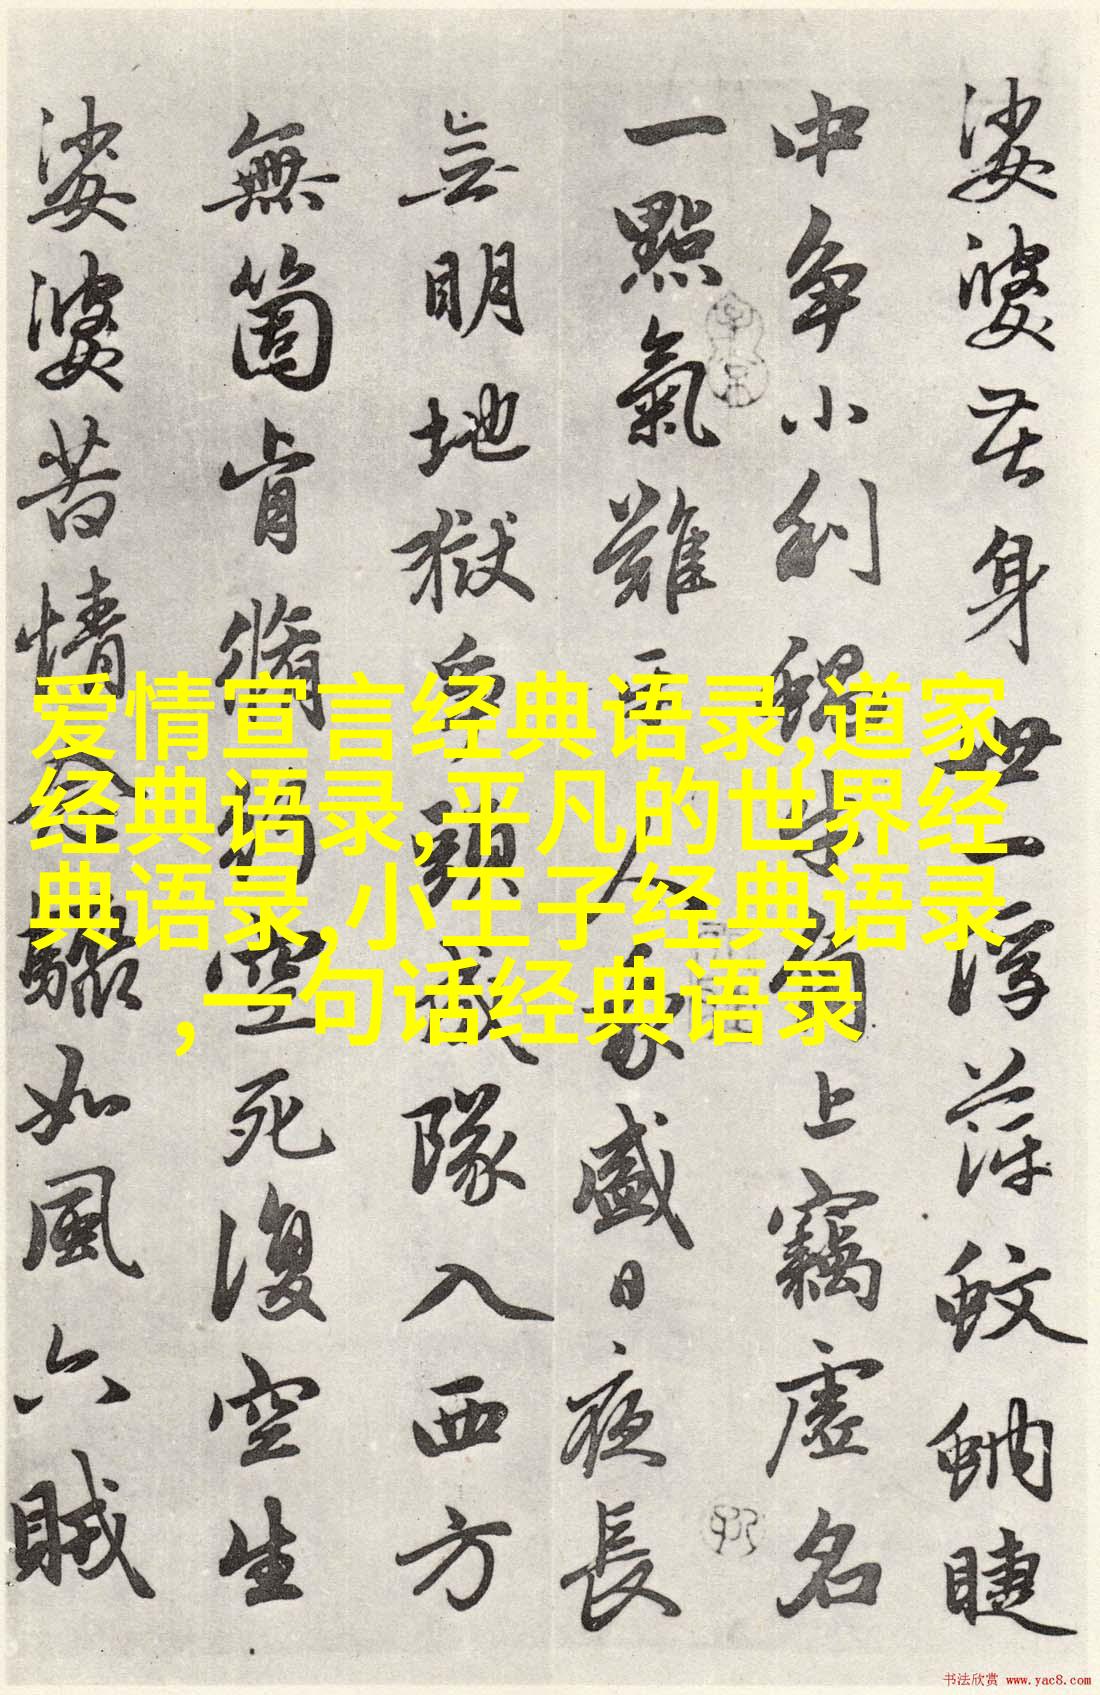 娑婆苦身世一浮萍蚊蚋睫
中争小利蝸牛角上竊虛名
一點氣難平人我盛日夜長
无明地獄爭頭成隊入西方
無箇肯脩行空死復空生
娑婆苦情念驟如風六賊
爱情宣言经典语录,道家
经典语录,平凡的世界经
典语录,小王子经典语录
，一句话经典语录
书法欣赏 www.yac8.com